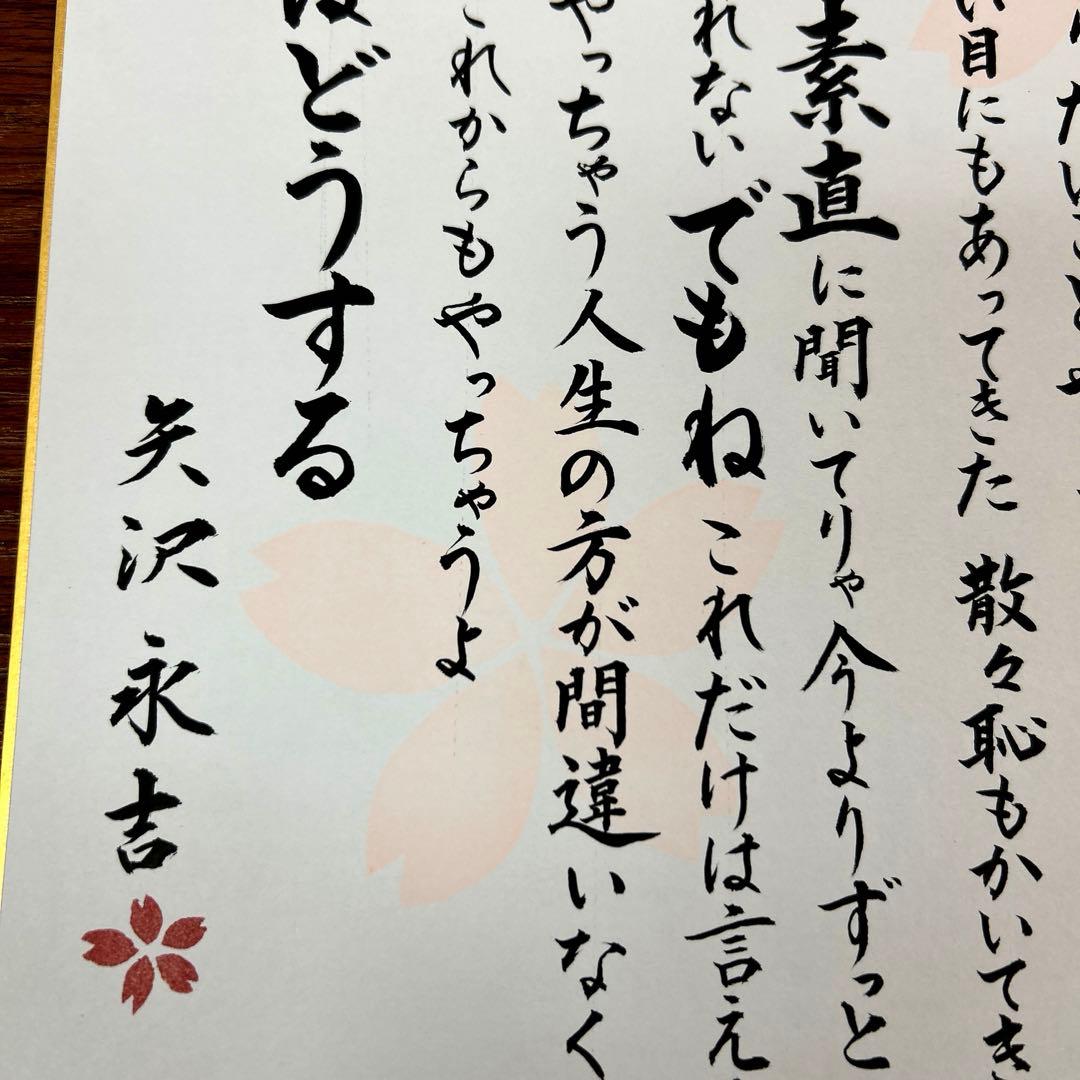 たいことや
い目にもあってきた 散々恥もかいてき
素直に聞いてりゃ今よりずっと
れない でもね これだけは言え
やっちゃう人生の方が間違いなく
これからもやっちゃうよ
はどうする
矢沢永吉